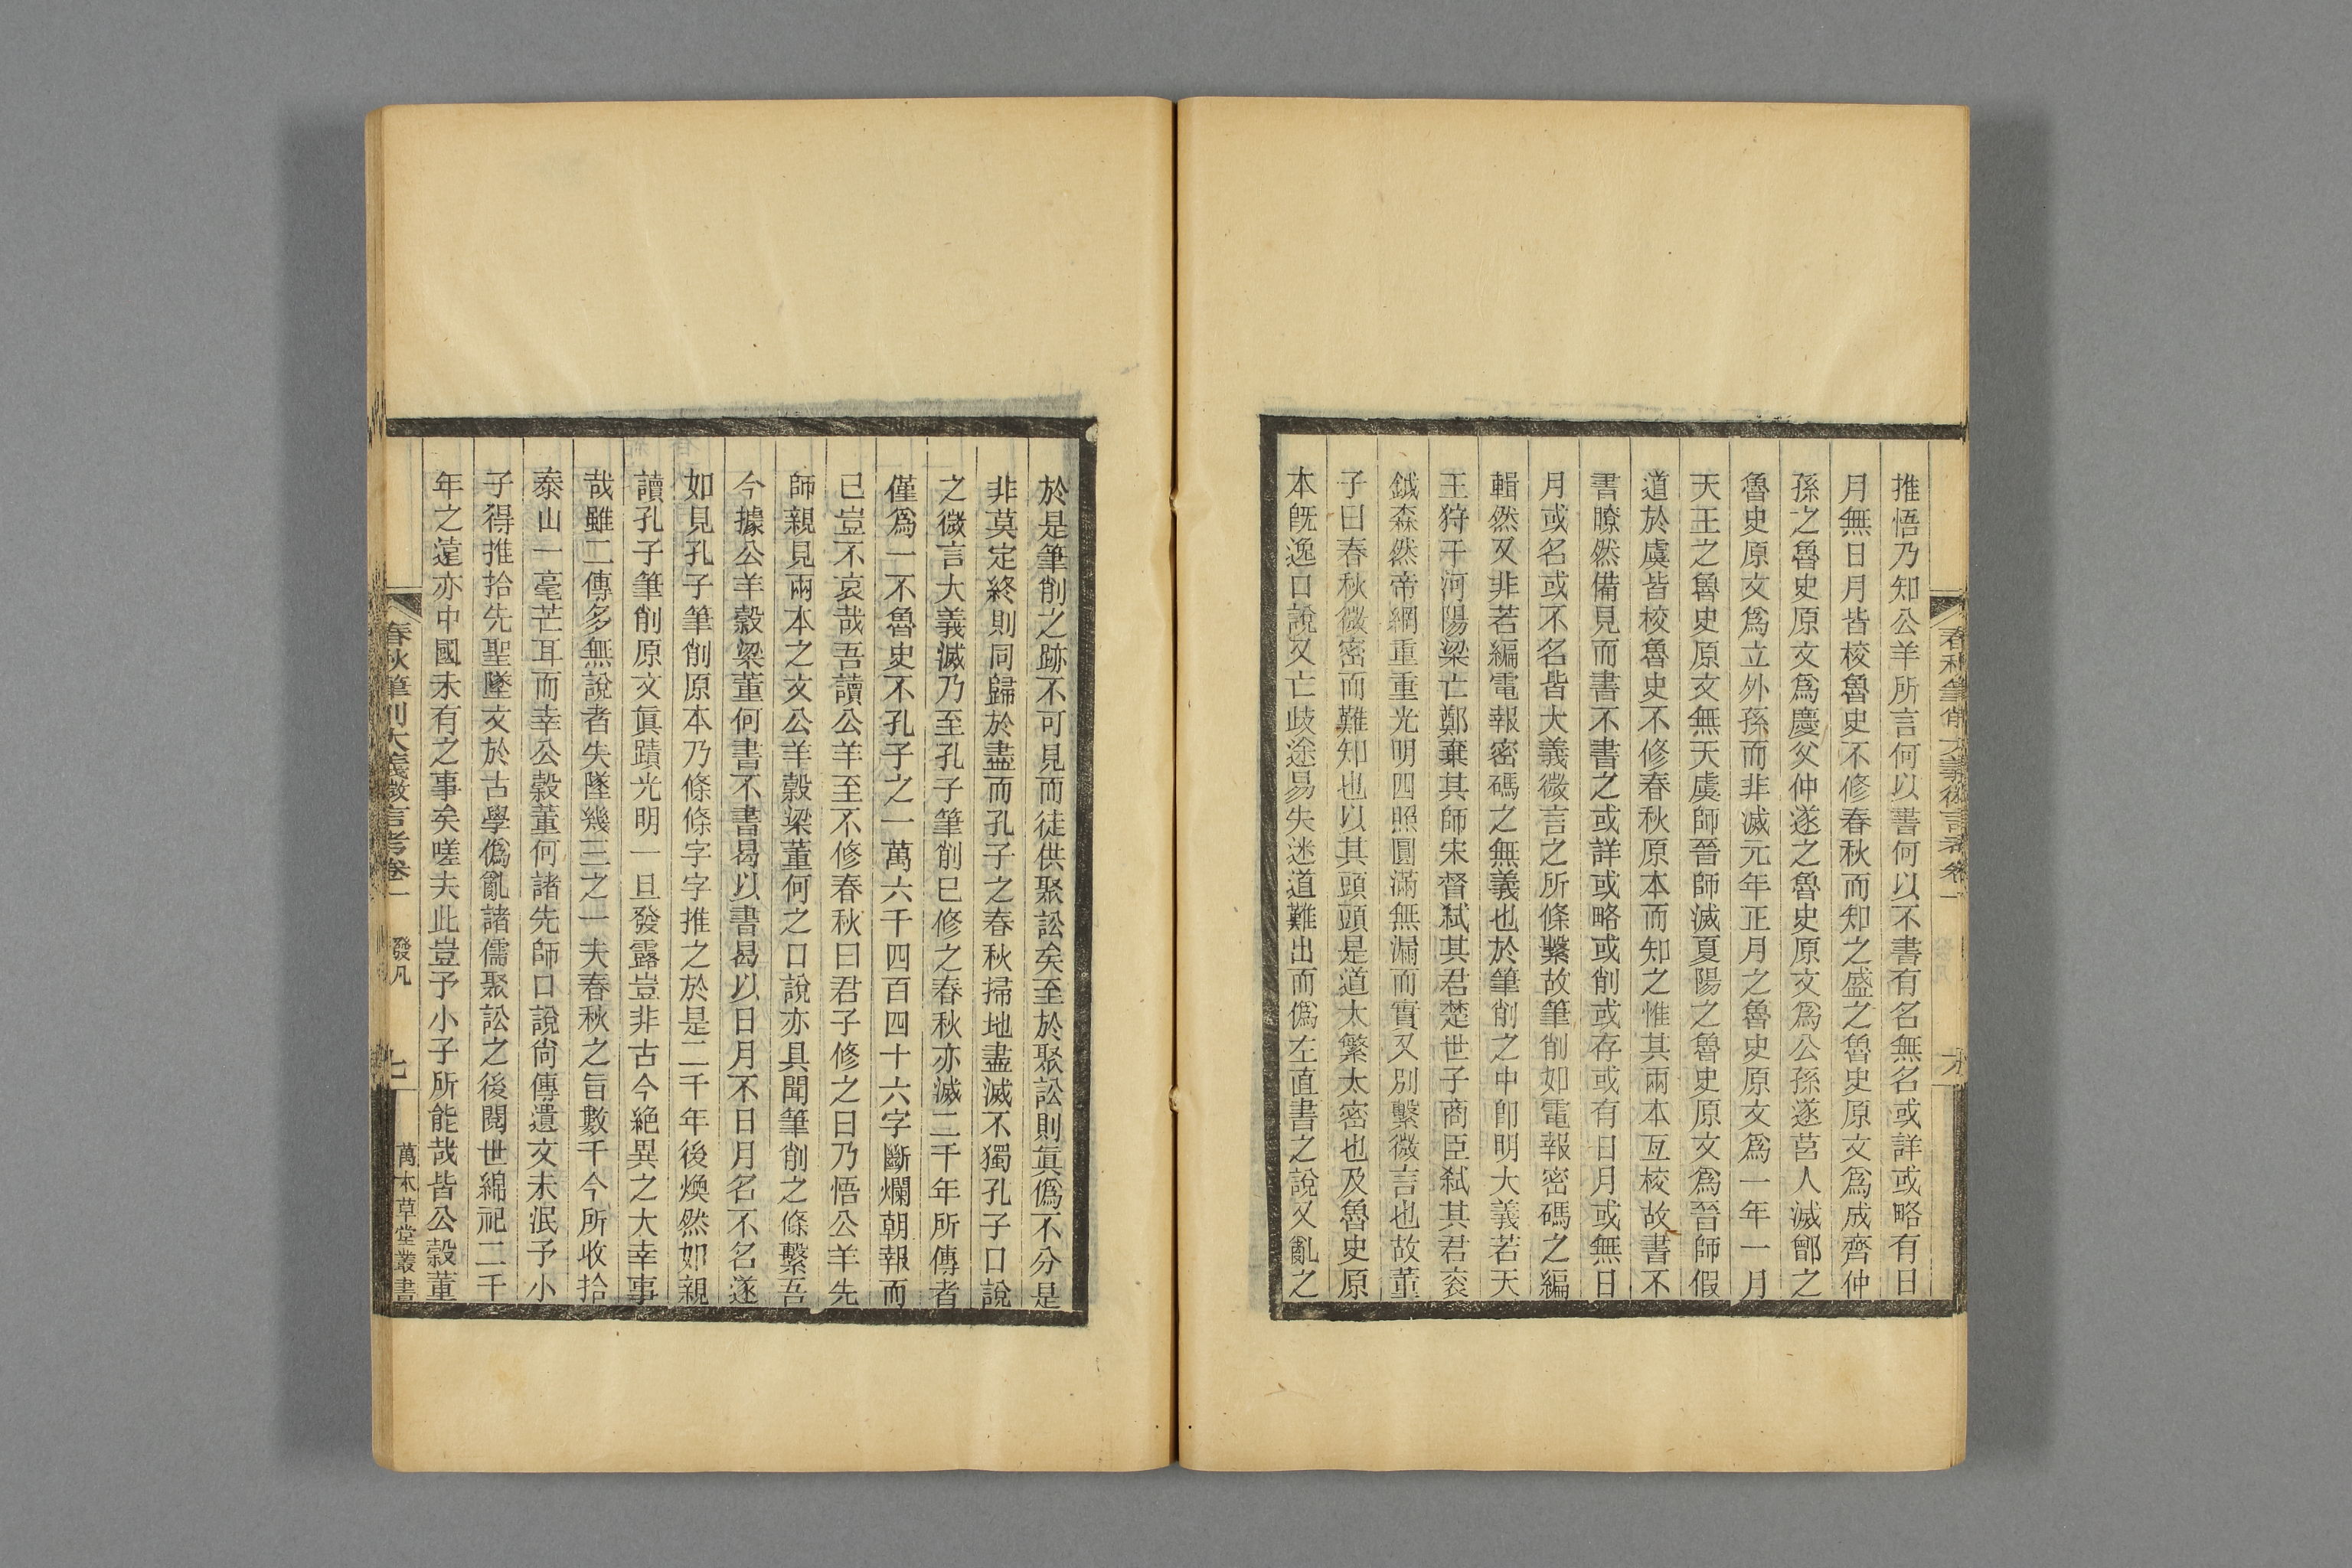 春秋筆削大義微言考卷一
推悟乃知公羊所言何以書何以不書有名無名或詳或略有日
月無日月皆校魯史不修春秋而知之盛之魯史原文爲成齊仲
孫之魯史原文爲慶父仲遂之魯史原文爲公孫遂莒人滅鄫之
魯史原文爲立外孫而非滅元年正月之魯史原文爲一年一月
天王之魯史原文無天虞師晉師滅夏陽之魯史原文爲晉師假
道於虞皆校魯史不修春秋原本而知之惟其兩本互校故書不
書暸然備見而書不書之或詳或略或削或存或有日月或無日
月或名或不名皆大義微言之所條繫故筆削如電報密碼之編
輯然又非若編電報密碼之無義也於筆削之中卽明大義若天
王狩于河陽梁亡鄭棄其師宋督弒其君楚世子商臣弒其君袞
鉞森然帝網重重光明四照圓滿無漏而實又別繫微言也故董
子曰春秋微密而難知也以其頭頭是道太繁太密也及魯史原
本旣逸口說又亡歧途易失迷道難出而僞左直書之說又亂之
於是筆削之跡不可見而徒供聚訟矣至於聚訟則眞僞不分是
非莫定終則同歸於盡而孔子之春秋掃地盡滅不獨孔子口說
之微言大義滅乃至孔子筆削已修之春秋亦滅二千年所傳者
僅爲一不魯史不孔子之一萬六千四百四十六字斷爛朝報而
已豈不哀哉吾讀公羊至不修春秋曰君子修之曰乃悟公羊先
師親見兩本之文公羊穀梁董何之口說亦具聞筆削之條繫吾
今據公羊穀梁董何書不書曷以書曷以日月不日月名不名遂
如見孔子筆削原本乃條條字字推之於是二千年後煥然如親
讀孔子筆削原文眞蹟光明一旦發露豈非古今絕異之大幸事
哉雖二傳多無說者失墜幾三之一夫春秋之旨數千今所收拾
泰山一毫芒耳而幸公穀董何諸先師口說尙傳遺文未泯予小
子得推拾先聖墜文於古學僞亂諸儒聚訟之後閱世綿祀二千
年之遠亦中國未有之事矣嗟夫此豈予小子所能哉皆公穀董
春秋筆削大義微言考卷一
發凡
七
萬木草堂叢書